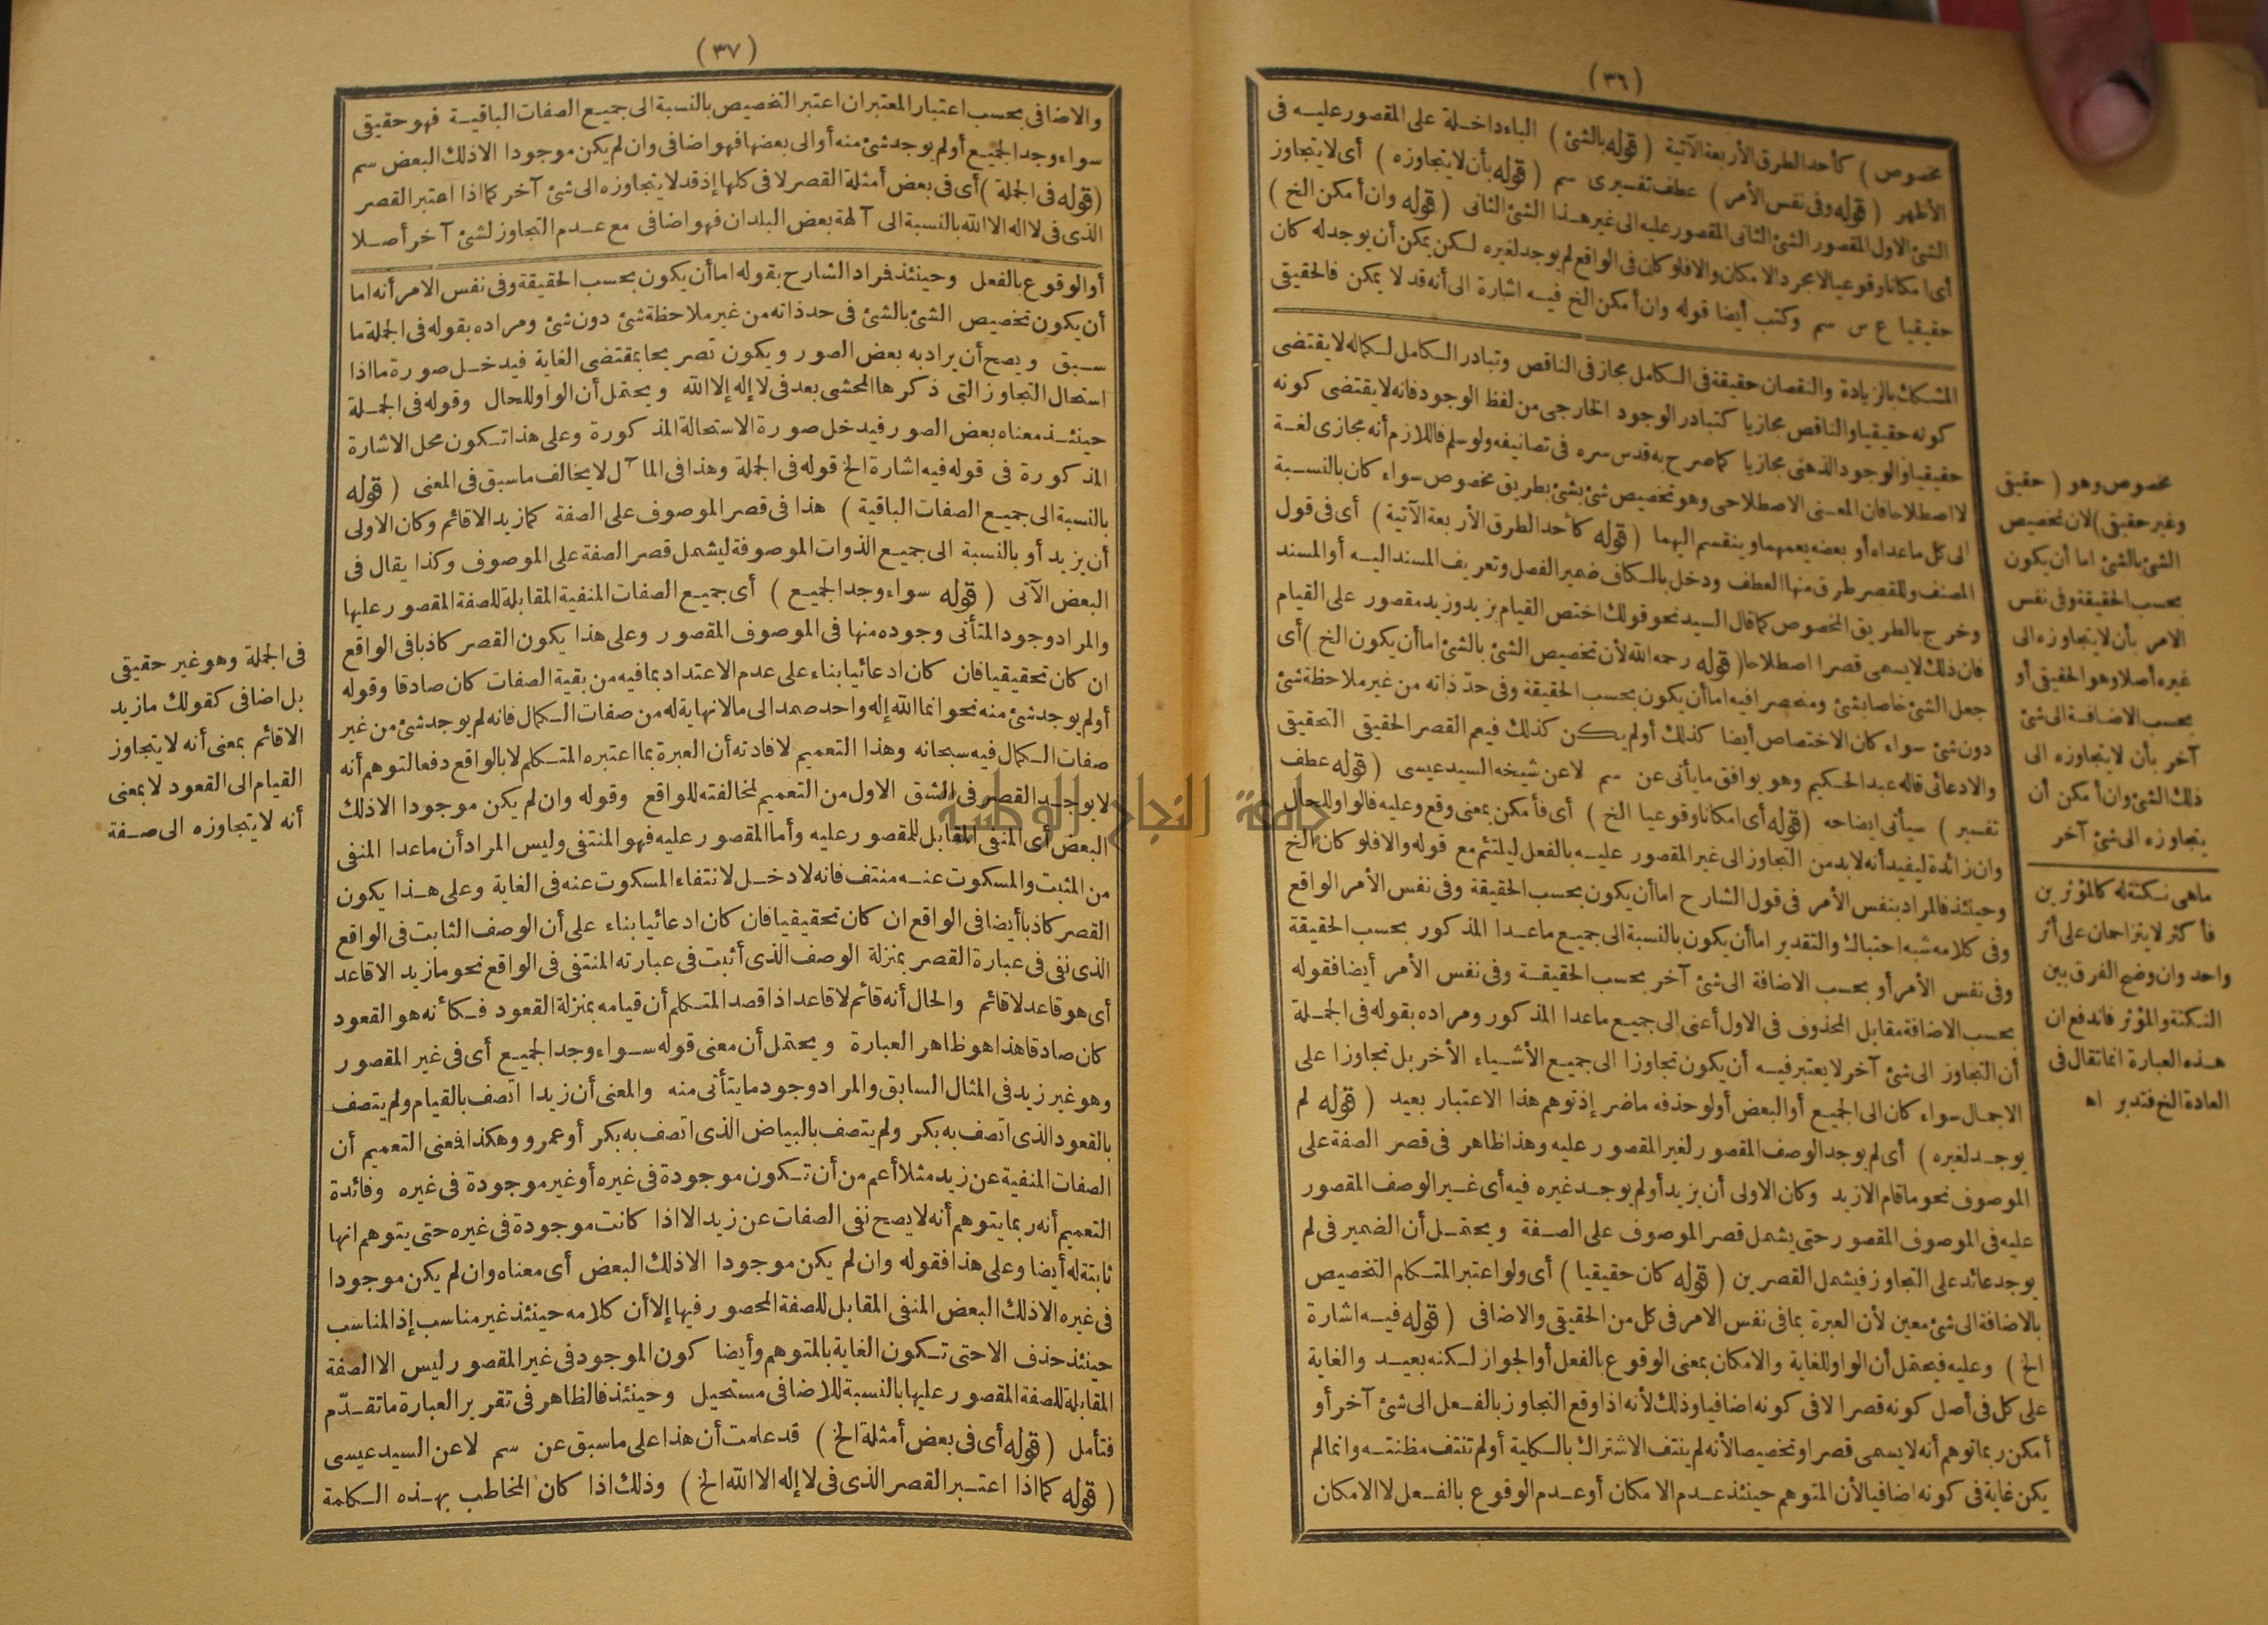 (٣٦)
مخصوص) كأحد الطرق الأربعة الآتية (قوله بالشئ) الباء داخلة على المقصور عليه فى
الأظهر (قوله وفى نفس الأمر) عطف تفسيرى سم (قوله بأن لا يتجاوزه) أى لا يتجاوز
الشئ الاول المقصور الشئ الثانى المقصور عليه الى غير هذا الشئ الثانى (قوله وان أمكن الخ)
أى امكانا وقوعيا لا مجرد الامكان والا فلو كان فى الواقع لم يوجد لغيره لكن يمكن أن يوجد له كان
حقيقيا ع س سم وكتب أيضا قوله وان أمكن الخ فيه اشارة الى أنه قد لا يمكن فالحقيقى
المشكك بالزيادة والنقصان حقيقة فى الكامل مجاز فى الناقص وتبادر الكامل لكماله لا يقتضى
كونه حقيقيا والناقص مجازيا كتبادر الوجود الخارجى من لفظ الوجود فانه لا يقتضى كونه
حقيقيا والوجود الذهنى مجازيا كما صرح به قدس سره فى تصانيفه ولو سلم فاللازم أنه مجازى لغة
لا اصطلاحا فان المعنى الاصطلاحى وهو تخصيص شئ بشئ بطريق مخصوص سواء كان بالنسبة
الى كل ما عداه أو بعضه يعمهما وينقسم اليهما (قوله كأحد الطرق الأربعة الآتية) أى فى قول
المصنف وللقصر طرق منها العطف ودخل بالكاف ضمير الفصل وتعريف المسند اليه أو المسند
وخرج بالطريق المخصوص كما قال السيد نحو قولك اختص القيام بزيد وزيد مقصور على القيام
فان ذلك لا يسمى قصرا اصطلاحا (قوله رحمه الله لأن تخصيص الشئ بالشئ اما أن يكون الخ) أى
جعل الشئ خاصا بشئ ومنحصرا فيه اما أن يكون بحسب الحقيقة وفى حدّ ذاته من غير ملاحظة شئ
دون شئ سواء كان الاختصاص أيضا كذلك أو لم يكن كذلك فيعم القصر الحقيقى التحقيقى
والادعائى قاله عبد الحكيم وهو يوافق ما يأتى عن سم لا عن شيخه السيد عيسى (قوله عطف
تفسير) سيأتى ايضاحه (قوله أى امكانا وقوعيا الخ) أى فأمكن بمعنى وقع وعليه فالواو للحال
وان زائدة ليفيد أنه لا بد من التجاوز الى غير المقصور عليه بالفعل ليلتئم مع قوله والا فلو كان الخ
وحينئذ فالمراد بنفس الأمر فى قول الشارح اما أن يكون بحسب الحقيقة وفى نفس الأمر الواقع
وفى كلامه شبه احتباك والتقدير اما أن يكون بالنسبة الى جميع ما عدا المذكور بحسب الحقيقة
وفى نفس الأمر أو بحسب الاضافة الى شئ آخر بحسب الحقيقة وفى نفس الأمر أيضا فقوله
بحسب الاضافة مقابل المحذوف فى الاول أعنى الى جميع ما عدا المذكور ومراده بقوله فى الجملة
أن التجاوز الى شئ آخر لا يعتبر فيه أن يكون تجاوزا الى جميع الأشياء الأخر بل تجاوزا على
الاجمال سواء كان الى الجميع أو البعض أو لو حذفه ماضر إذ توهم هذا الاعتبار بعيد (قوله لم
يوجد لغيره) أى لم يوجد الوصف المقصور لغير المقصور عليه وهذا ظاهر فى قصر الصفة على
الموصوف نحو ما قام الا زيد وكان الاولى أن يزيد أو لم يوجد غيره فيه أى غير الوصف المقصور
عليه فى الموصوف المقصور حتى يشمل قصر الموصوف على الصفة ويحتمل أن الضمير فى لم
يوجد عائد على التجاوز فيشمل القصرين (قوله كان حقيقيا) أى ولو اعتبر المتكلم التخصيص
بالاضافة الى شئ معين لأن العبرة بما فى نفس الامر فى كل من الحقيقى والاضافى (قوله فيه اشارة
الخ) وعليه فيحتمل أن الواو للغاية والامكان بمعنى الوقوع بالفعل أو الجواز لكنه بعيد والغاية
على كل فى أصل كونه قصرا لا فى كونه اضافيا وذلك لأنه اذا وقع التجاوز بالفعل الى شئ آخر أو
أمكن ربما توهم أنه لا يسمى قصرا وتخصيصا لأنه لم ينتف الاشتراك بالكلية أو لم تنتف مظنته وانما لم
يكن غاية فى كونه اضافيا لأن المتوهم حينئذ عدم الامكان أو عدم الوقوع بالفعل لا الامكان
مخصوص وهو (حقيقى
وغير حقيقى) لان تخصيص
الشئ بالشئ اما أن يكون
بحسب الحقيقة وفى نفس
الامر بأن لا يتجاوزه الى
غيره أصلا وهو الحقيقى أو
بحسب الاضافة الى شئ
آخر بأن لا يتجاوزه الى
ذلك الشئ وان أمكن أن
يتجاوزه الى شئ آخر
ماهى نكتة له كالمؤثرين
فأكثر لا يتزاحمان على أثر
واحد وان وضح الفرق بين
النكتة والمؤثر فاندفع ان
هذه العبارة انما تقال فى
العادة الخ فتدبر اه
(٣٧)
والاضافى بحسب اعتبار المعتبر ان اعتبر التخصيص بالنسبة الى جميع الصفات الباقية فهو حقيقى
سواء وجد الجميع أو لم يوجد شئ منه أو الى بعضها فهو اضافى وان لم يكن موجودا الا ذلك البعض سم
(قوله فى الجملة) أى فى بعض أمثلة القصر لا فى كلها إذ قد لا يتجاوزه الى شئ آخر كما اذا اعتبر القصر
الذى فى لا اله الا الله بالنسبة الى آلهة بعض البلدان فهو اضافى مع عدم التجاوز لشئ آخر أصلا
أو الوقوع بالفعل وحينئذ فراد الشارح بقوله اما أن يكون بحسب الحقيقة وفى نفس الامر أنه اما
أن يكون تخصيص الشئ بالشئ فى حد ذاته من غير ملاحظة شئ دون شئ ومراده بقوله فى الجملة ما
سبق ويصح أن يراد به بعض الصور ويكون تصريحا بمقتضى الغاية فيدخل صورة ما اذا
استحال التجاوز التى ذكرها المحشى بعد فى لا إله إلا الله ويحتمل أن الواو للحال وقوله فى الجملة
حينئذ معناه بعض الصور فيدخل صورة الاستحالة المذكورة وعلى هذا تكون محل الاشارة
المذكورة فى قوله فيه اشارة الخ قوله فى الجملة وهذا فى المآل لا يخالف ما سبق فى المعنى (قوله
بالنسبة الى جميع الصفات الباقية) هذا فى قصر الموصوف على الصفة كما زيد الا قائم وكان الاولى
أن يزيد أو بالنسبة الى جميع الذوات الموصوفة ليشمل قصر الصفة على الموصوف وكذا يقال فى
البعض الآتى (قوله سواء وجد الجميع) أى جميع الصفات المنفية المقابلة للصفة المقصور عليها
والمراد وجود المتأتى وجوده منها فى الموصوف المقصور وعلى هذا يكون القصر كاذبا فى الواقع
ان كان تحقيقيا فان كان ادعائيا بناء على عدم الاعتداد بما فيه من بقية الصفات كان صادقا وقوله
أو لم يوجد شئ منه نحو انما الله إله واحد صمد الى ما لا نهاية له من صفات الكمال فانه لم يوجد شئ من غير
صفات الكمال فيه سبحانه وهذا التعميم لافادته أن العبرة بما اعتبره المتكلم لا بالواقع دفعا لتوهم أنه
لا يوجد القصر فى الشق الاول من التعميم لمخالفته للواقع وقوله وان لم يكن موجودا الا ذلك
البعض أى المنفى المقابل للمقصور عليه وأما المقصور عليه فهو المنتفى وليس المراد أن ما عدا المنفى
من المثبت والمسكوت عنه منتف فانه لا دخل لانتفاء المسكوت عنه فى الغاية وعلى هذا يكون
القصر كاذبا أيضا فى الواقع ان كان تحقيقيا فان كان ادعائيا بناء على أن الوصف الثابت فى الواقع
الذى نفى فى عبارة القصر بمنزلة الوصف الذى أثبت فى عبارته المنتفى فى الواقع نحو ما زيد الا قاعد
أى هو قاعد لا قائم والحال أنه قائم لا قاعد اذا قصد المتكلم أن قيامه بمنزلة القعود فكأنه هو القعود
كان صادقا هذا هو ظاهر العبارة ويحتمل أن معنى قوله سواء وجد الجميع أى فى غير المقصور
وهو غير زيد فى المثال السابق والمراد وجود ما يتأتى منه والمعنى أن زيدا اتصف بالقيام ولم يتصف
بالقعود الذى اتصف به بكر ولم يتصف بالبياض الذى اتصف به بكر أو عمرو وهكذا فعنى التعميم أن
الصفات المنفية عن زيد مثلا أعم من أن تكون موجودة فى غيره أو غير موجودة فى غيره وفائدة
التعميم أنه ربما يتوهم أنه لا يصح نفى الصفات عن زيد الا اذا كانت موجودة فى غيره حتى يتوهم انها
ثابتة له أيضا وعلى هذا فقوله وان لم يكن موجودا الا ذلك البعض أى معناه وان لم يكن موجودا
فى غيره الا ذلك البعض المنفى المقابل للصفة المحصور فيها إلا أن كلامه حينئذ غير مناسب إذ المناسب
حينئذ حذف الا حتى تكون الغاية بالمتوهم وأيضا كون الموجود فى غير المقصور ليس الا الصفة
المقابلة للصفة المقصور عليها بالنسبة للاضافى مستحيل وحينئذ فالظاهر فى تقرير العبارة ما تقدّم
فتأمل (قوله أى فى بعض أمثلة الخ) قد علمت أن هذا على ما سبق عن سم لا عن السيد عيسى
(قوله كما اذا اعتبر القصر الذى فى لا إله الا الله الخ) وذلك اذا كان المخاطب بهذه الكلمة
فى الجملة وهو غير حقيقى
بل اضافى كقولك ما زيد
الا قائم بمعنى أنه لا يتجاوز
القيام الى القعود لا بمعنى
أنه لا يتجاوزه الى صفة
جامعة النجاح الوطنية